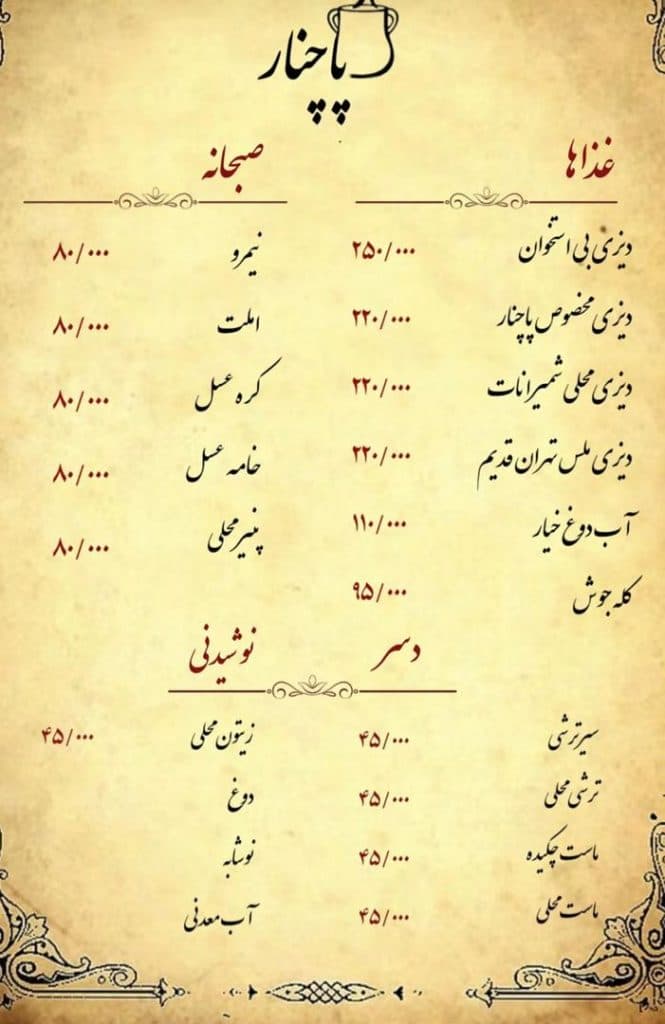 پاچنار
غذاها
دیزی بی استخوان ۲۵۰/۰۰۰
دیزی مخصوص پاچنار ۲۲۰/۰۰۰
دیزی محلی شمیرانات ۲۲۰/۰۰۰
دیزی ملس تهران قدیم ۲۲۰/۰۰۰
آب دوغ خیار ۱۱۰/۰۰۰
کله جوش ۹۵/۰۰۰
صبحانه
نیمرو ۸۰/۰۰۰
املت ۸۰/۰۰۰
کره عسل ۸۰/۰۰۰
خامه عسل ۸۰/۰۰۰
پنیر محلی ۸۰/۰۰۰
دسر نوشیدنی
سیر ترشی ۴۵/۰۰۰
ترشی محلی ۴۵/۰۰۰
ماست چکیده ۴۵/۰۰۰
ماست محلی ۴۵/۰۰۰
زیتون محلی ۴۵/۰۰۰
دوغ
نوشابه
آب معدنی